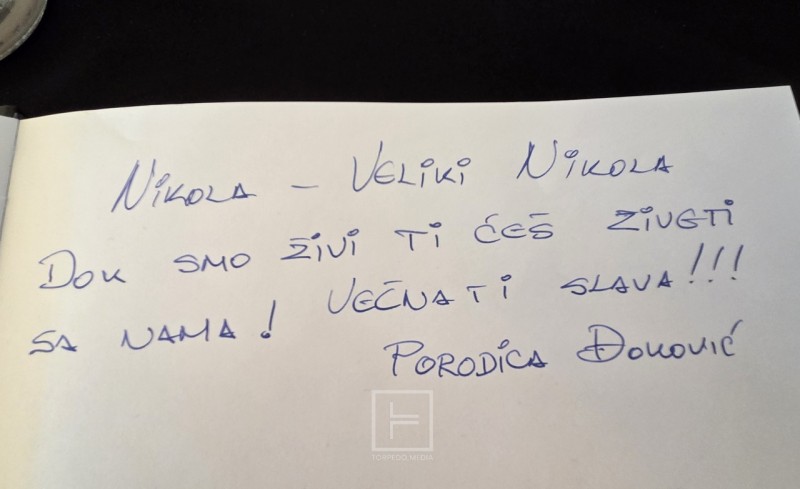 Nikola – Veliki Nikola
Dok smo živi ti ćeš živeti
sa nama! Večna ti slava!!!
Porodica Đoković
TORPEDO MEDIA